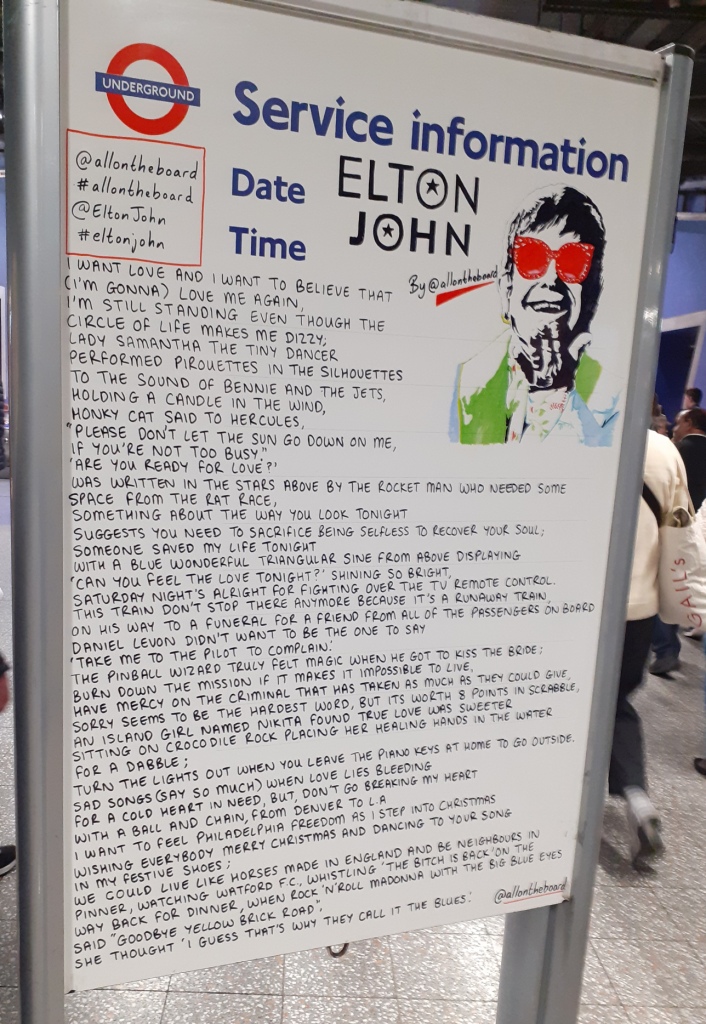 UNDERGROUND
Service information
@allontheboard
#allontheboard
@EltonJohn
#eltonjohn
Date
Time
ELTON
JOHN
By @allontheboard
I WANT LOVE AND I WANT TO BELIEVE THAT
(I'M GONNA) LOVE ME AGAIN,
I'M STILL STANDING EVEN THOUGH THE
CIRCLE OF LIFE MAKES ME DIZZY;
LADY SAMANTHA THE TINY DANCER
PERFORMED PIROUETTES IN THE SILHOUETTES
TO THE SOUND OF BENNIE AND THE JETS,
HOLDING A CANDLE IN THE WIND,
HONKY CAT SAID TO HERCULES,
"PLEASE DON'T LET THE SUN GO DOWN ON ME,
IF YOU'RE NOT TOO BUSY."
'ARE YOU READY FOR LOVE?'
WAS WRITTEN IN THE STARS ABOVE BY THE ROCKET MAN WHO NEEDED SOME
SPACE FROM THE RAT RACE,
SOMETHING ABOUT THE WAY YOU LOOK TONIGHT
SUGGESTS YOU NEED TO SACRIFICE BEING SELFLESS TO RECOVER YOUR SOUL;
SOMEONE SAVED MY LIFE TONIGHT
WITH A BLUE WONDERFUL TRIANGULAR SINE FROM ABOVE DISPLAYING
'CAN YOU FEEL THE LOVE TONIGHT?' SHINING SO BRIGHT,
SATURDAY NIGHT'S ALRIGHT FOR FIGHTING OVER THE TV REMOTE CONTROL.
THIS TRAIN DON'T STOP THERE ANYMORE BECAUSE IT'S A RUNAWAY TRAIN,
ON HIS WAY TO A FUNERAL FOR A FRIEND FROM ALL OF THE PASSENGERS ON BOARD
DANIEL LEVON DIDN'T WANT TO BE THE ONE TO SAY
'TAKE ME TO THE PILOT TO COMPLAIN.'
THE PINBALL WIZARD TRULY FELT MAGIC WHEN HE GOT TO KISS THE BRIDE;
BURN DOWN THE MISSION IF IT MAKES IT IMPOSSIBLE TO LIVE,
HAVE MERCY ON THE CRIMINAL THAT HAS TAKEN AS MUCH AS THEY COULD GIVE,
SORRY SEEMS TO BE THE HARDEST WORD, BUT ITS WORTH 8 POINTS IN SCRABBLE,
AN ISLAND GIRL NAMED NIKITA FOUND TRUE LOVE WAS SWEETER
SITTING ON CROCODILE ROCK PLACING HER HEALING HANDS IN THE WATER
FOR A DABBLE;
TURN THE LIGHTS OUT WHEN YOU LEAVE THE PIANO KEYS AT HOME TO GO OUTSIDE.
SAD SONGS (SAY SO MUCH) WHEN LOVE LIES BLEEDING
FOR A COLD HEART IN NEED, BUT, DON'T GO BREAKING MY HEART
WITH A BALL AND CHAIN, FROM DENVER TO L.A
I WANT TO FEEL PHILADELPHIA FREEDOM AS I STEP INTO CHRISTMAS
WISHING EVERYBODY MERRY CHRISTMAS AND DANCING TO YOUR SONG
IN MY FESTIVE SHOES;
WE COULD LIVE LIKE HORSES MADE IN ENGLAND AND BE NEIGHBOURS IN
PINNER, WATCHING WATFORD F.C., WHISTLING 'THE BITCH IS BACK' ON THE
WAY BACK FOR DINNER, WHEN ROCK 'N' ROLL MADONNA WITH THE BIG BLUE EYES
SAID "GOODBYE YELLOW BRICK ROAD".
SHE THOUGHT 'I GUESS THAT'S WHY THEY CALL IT THE BLUES.'
@allontheboard
GAIL's